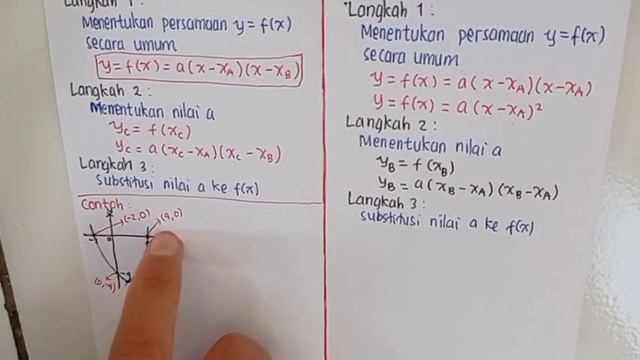 Langkah 1 :
Menentukan persamaan y = f(x)
secara umum
y = f(x) = a(x-x_A)(x-x_B)
Langkah 2 :
Menentukan nilai a
y_C = f(x_C)
y_C = a(x_C-x_A)(x_C-x_B)
Langkah 3 :
Substitusi nilai a ke f(x)
Contoh :
(-2,0)
0
Langkah 1 :
Menentukan persamaan y = f(x)
secara umum
y = f(x) = a(x-x_A)(x-x_A)
y = f(x) = a(x-x_A)²
Langkah 2 :
Menentukan nilai a
y_B = f(x_B)
y_B = a(x_B-x_A)(x_B-x_A)
Langkah 3 :
Substitusi nilai a ke f(x)